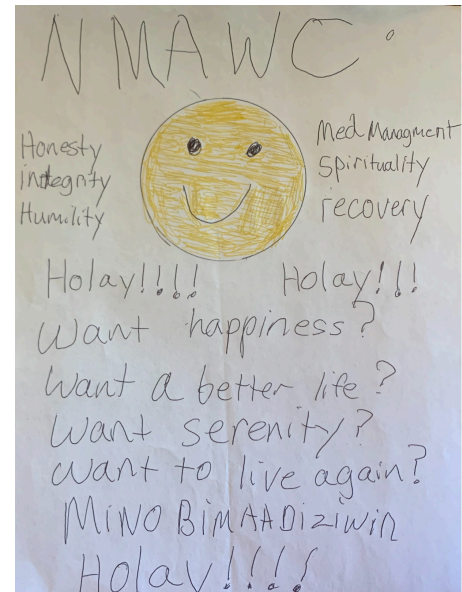 NMAWC.
Honesty
integrity
Humility
Med Managment
Spirituality
recovery
Holay!!!! Holay!!!
Want happiness?
Want a better life?
Want serenity?
Want to live again?
MiNO BiMAADiziwin
Holay!!!!